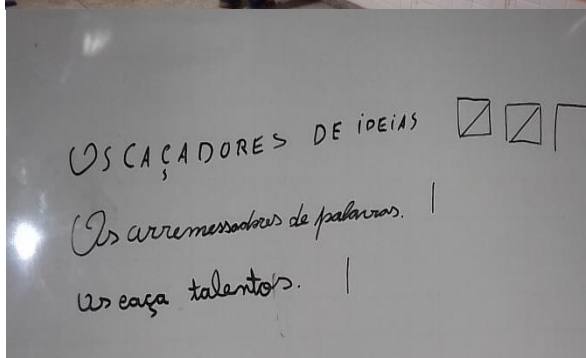 OS CAÇADORES DE IDEIAS
Os arremessadores de palavras.
Os caça talentos.